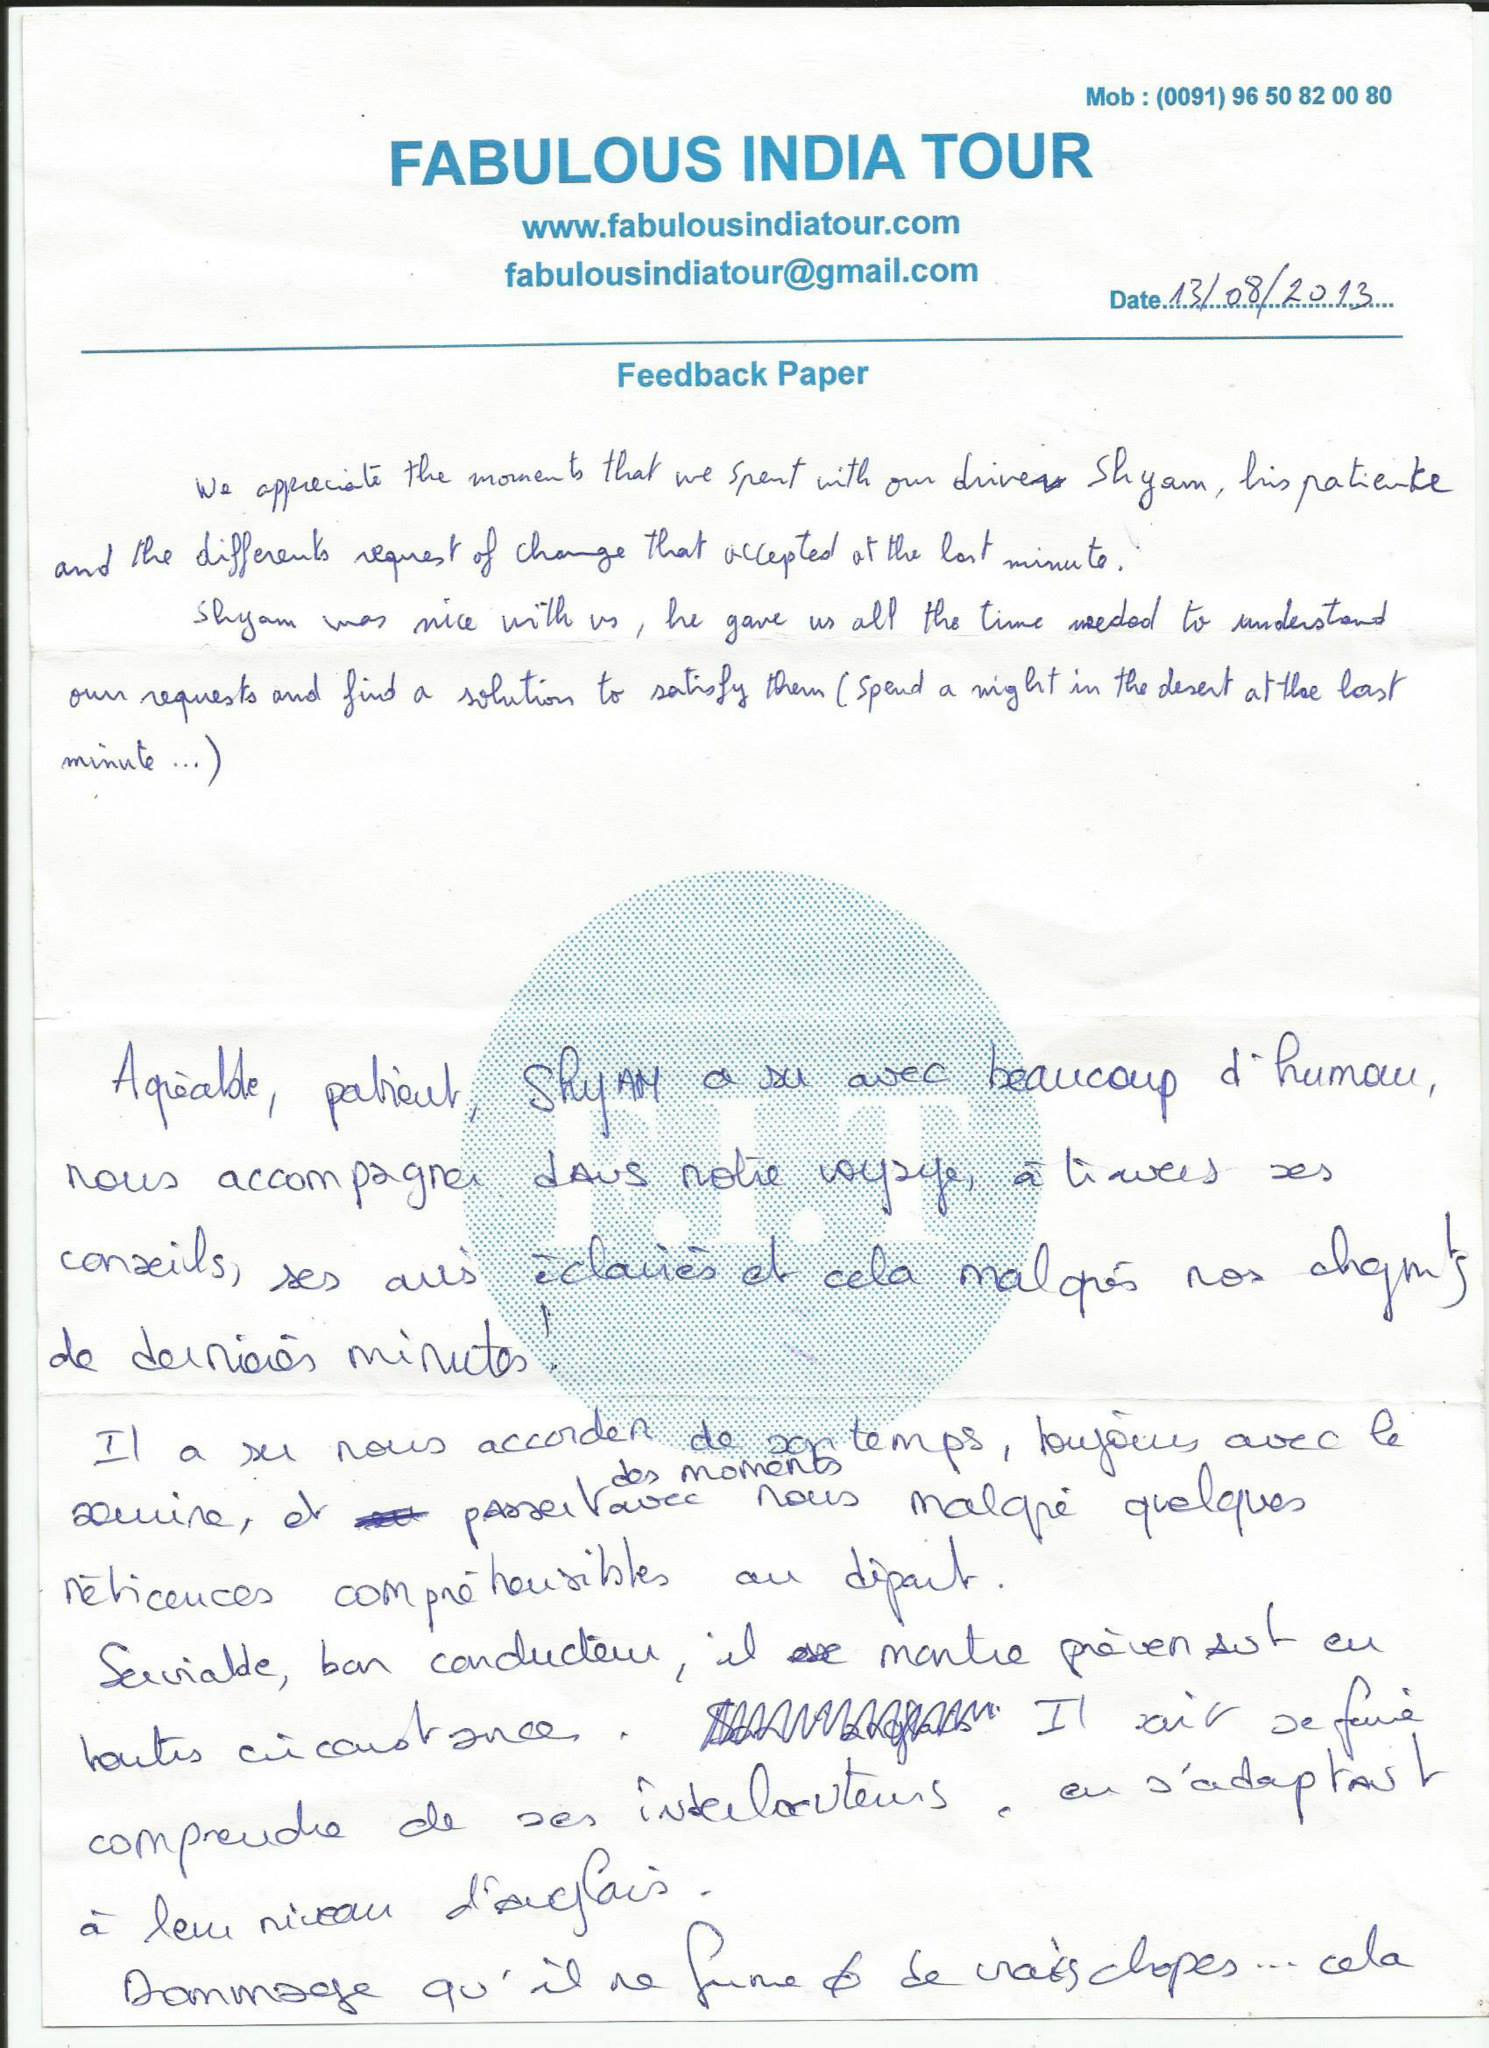 Mob : (0091) 96 50 82 00 80
FABULOUS INDIA TOUR
www.fabulousindiatour.com
fabulousindiatour@gmail.com
Date 13/08/2013
Feedback Paper
We appreciate the moments that we spent with our driver Shyam, his patience
and the differents request of change that accepted at the last minute.
Shyam was nice with us, he gave us all the time needed to understand
our requests and find a solution to satisfy them (spend a night in the desert at the last
minute ...)
F.I.T
Agréable, patient, ShyAM a su avec beaucoup d'humour,
nous accompagner dans notre voyage, à travers ses
conseils, ses avis éclairés et cela malgrés nos chgmts
de dernières minutes !
Il a su nous accorder de son temps, toujours avec le
des moments
sourire, et passer avec nous malgré quelques
réticences compréhensibles au départ.
Serviable, bon conducteur, il se montre prévenant en
toutes circonstances. Il sait se faire
comprendre de ses interlocuteurs, en s'adaptant
à leur niveau d'anglais.
Dommage qu'il ne fume de vrais clopes... cela